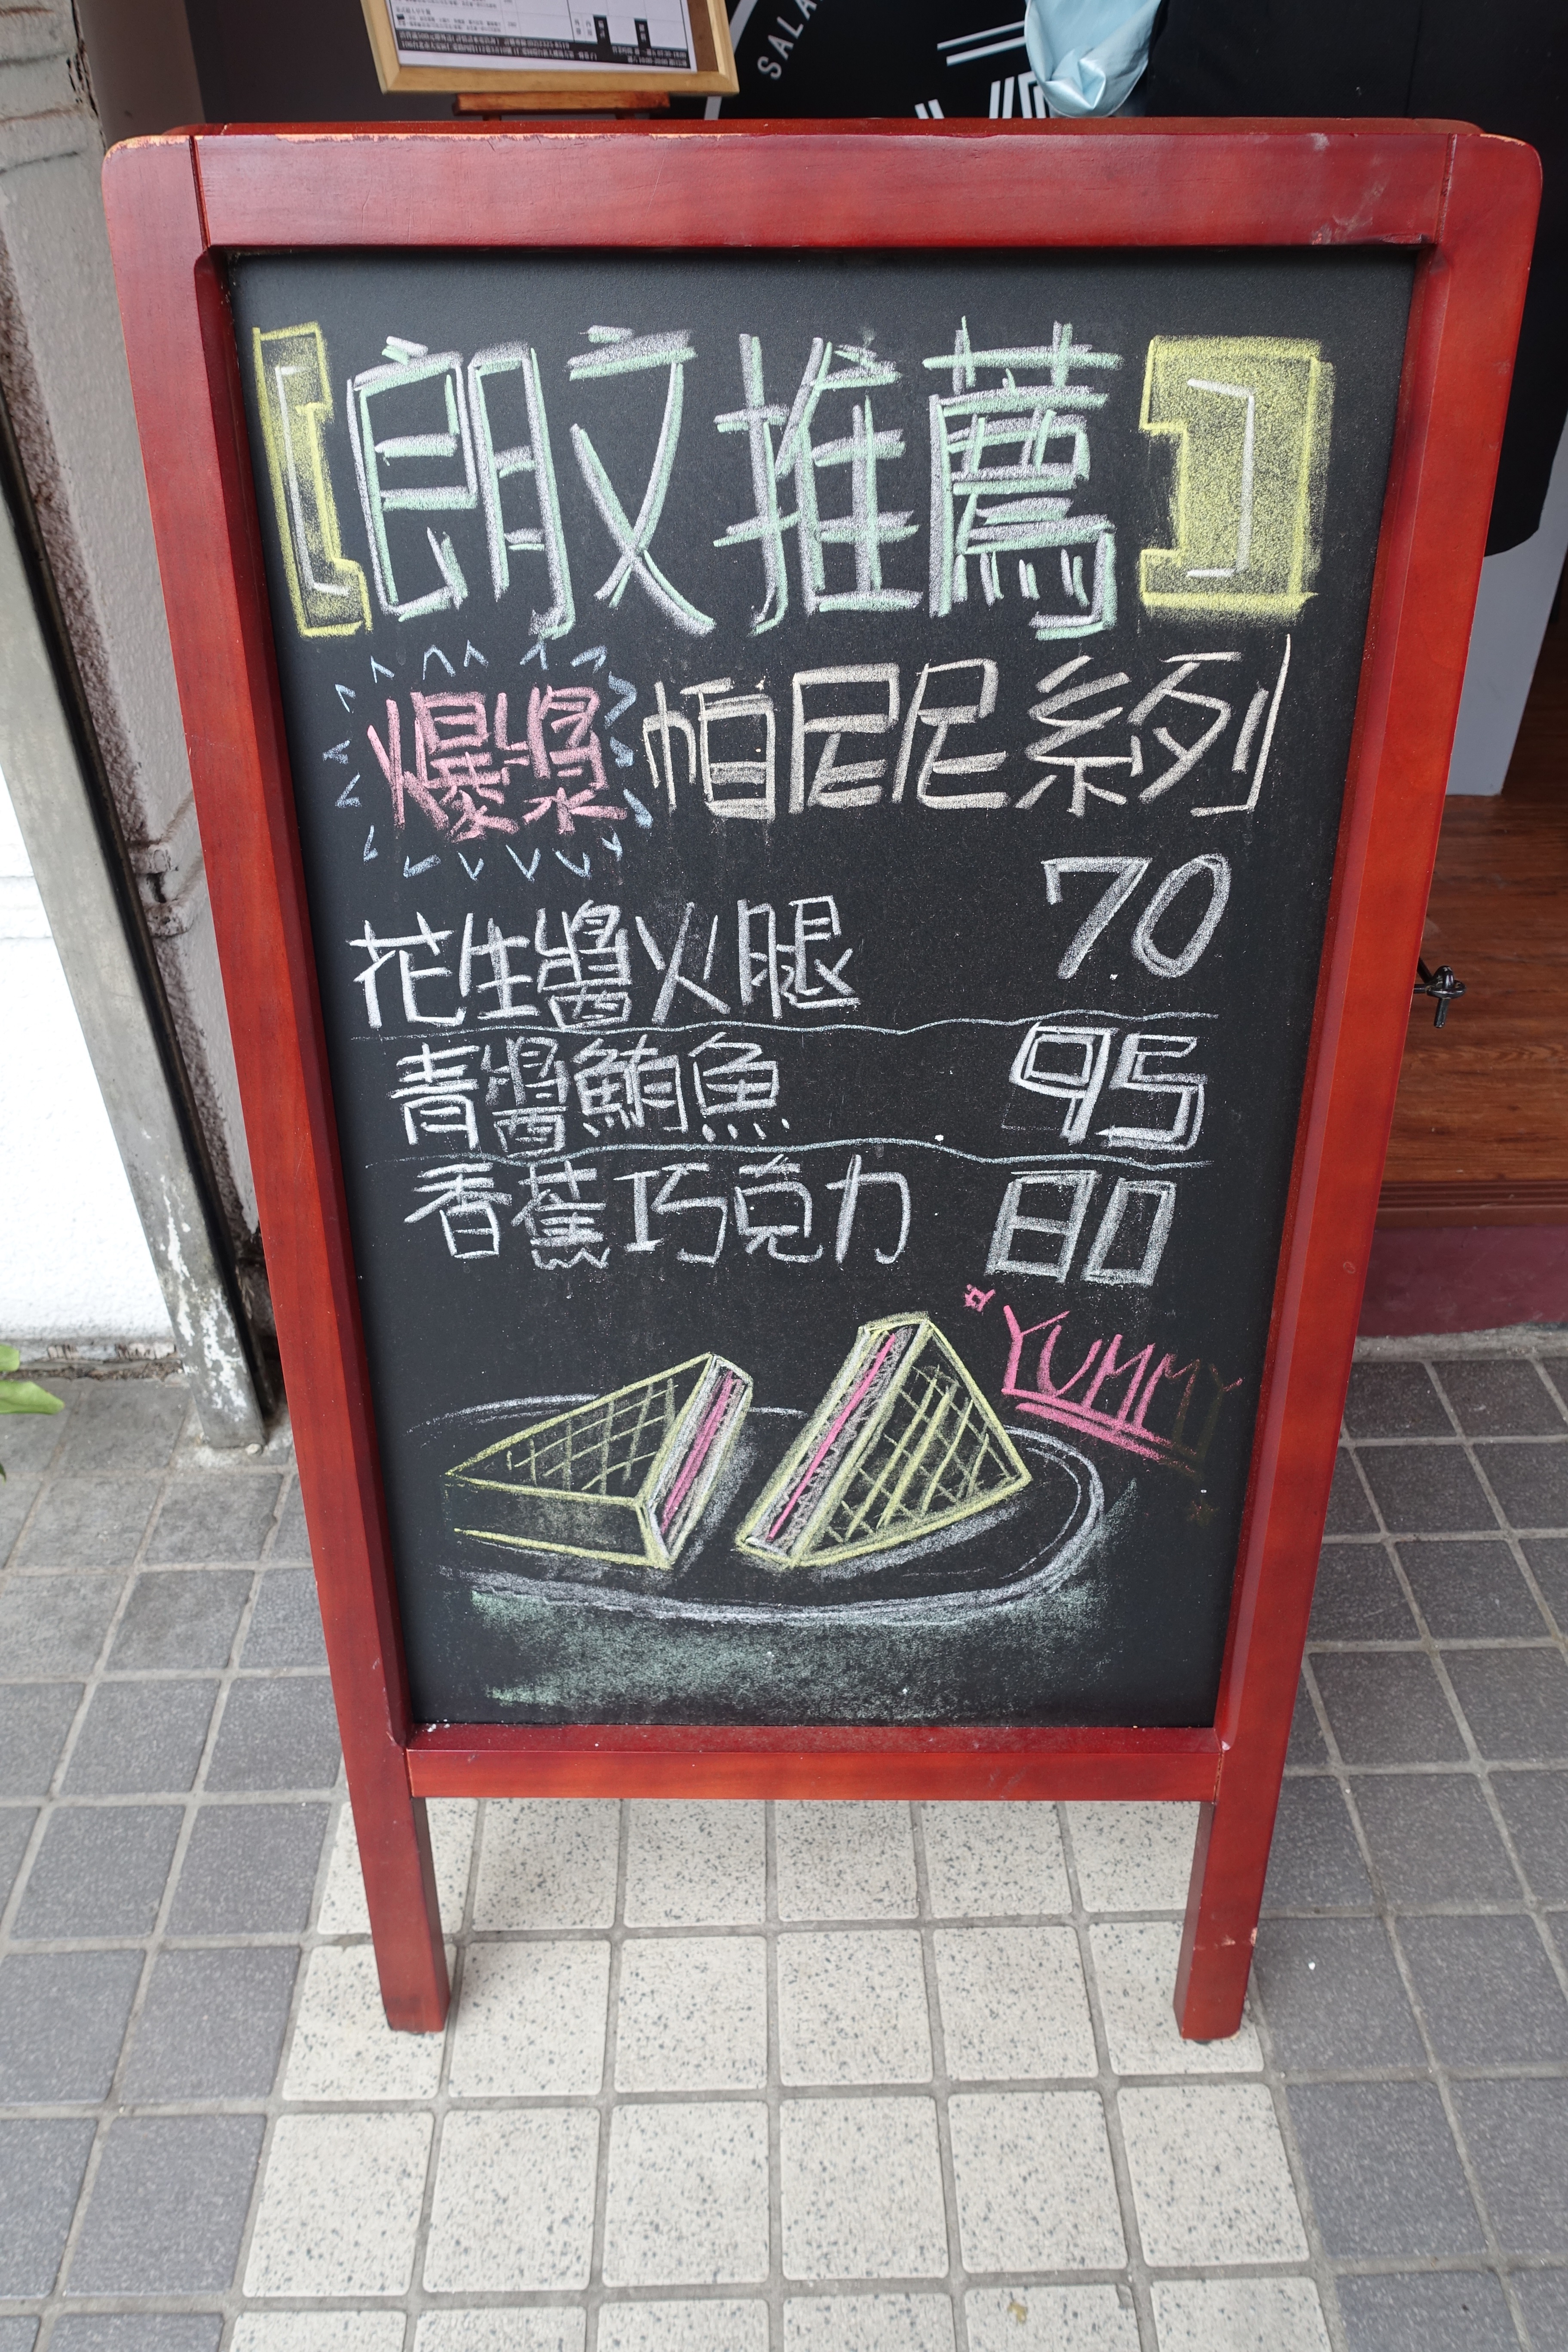 SALA
【朗文推薦】
爆漿帕尼尼系列
花生醬火腿 70
青醬鮪魚 95
香蕉巧克力 80
YUMMY